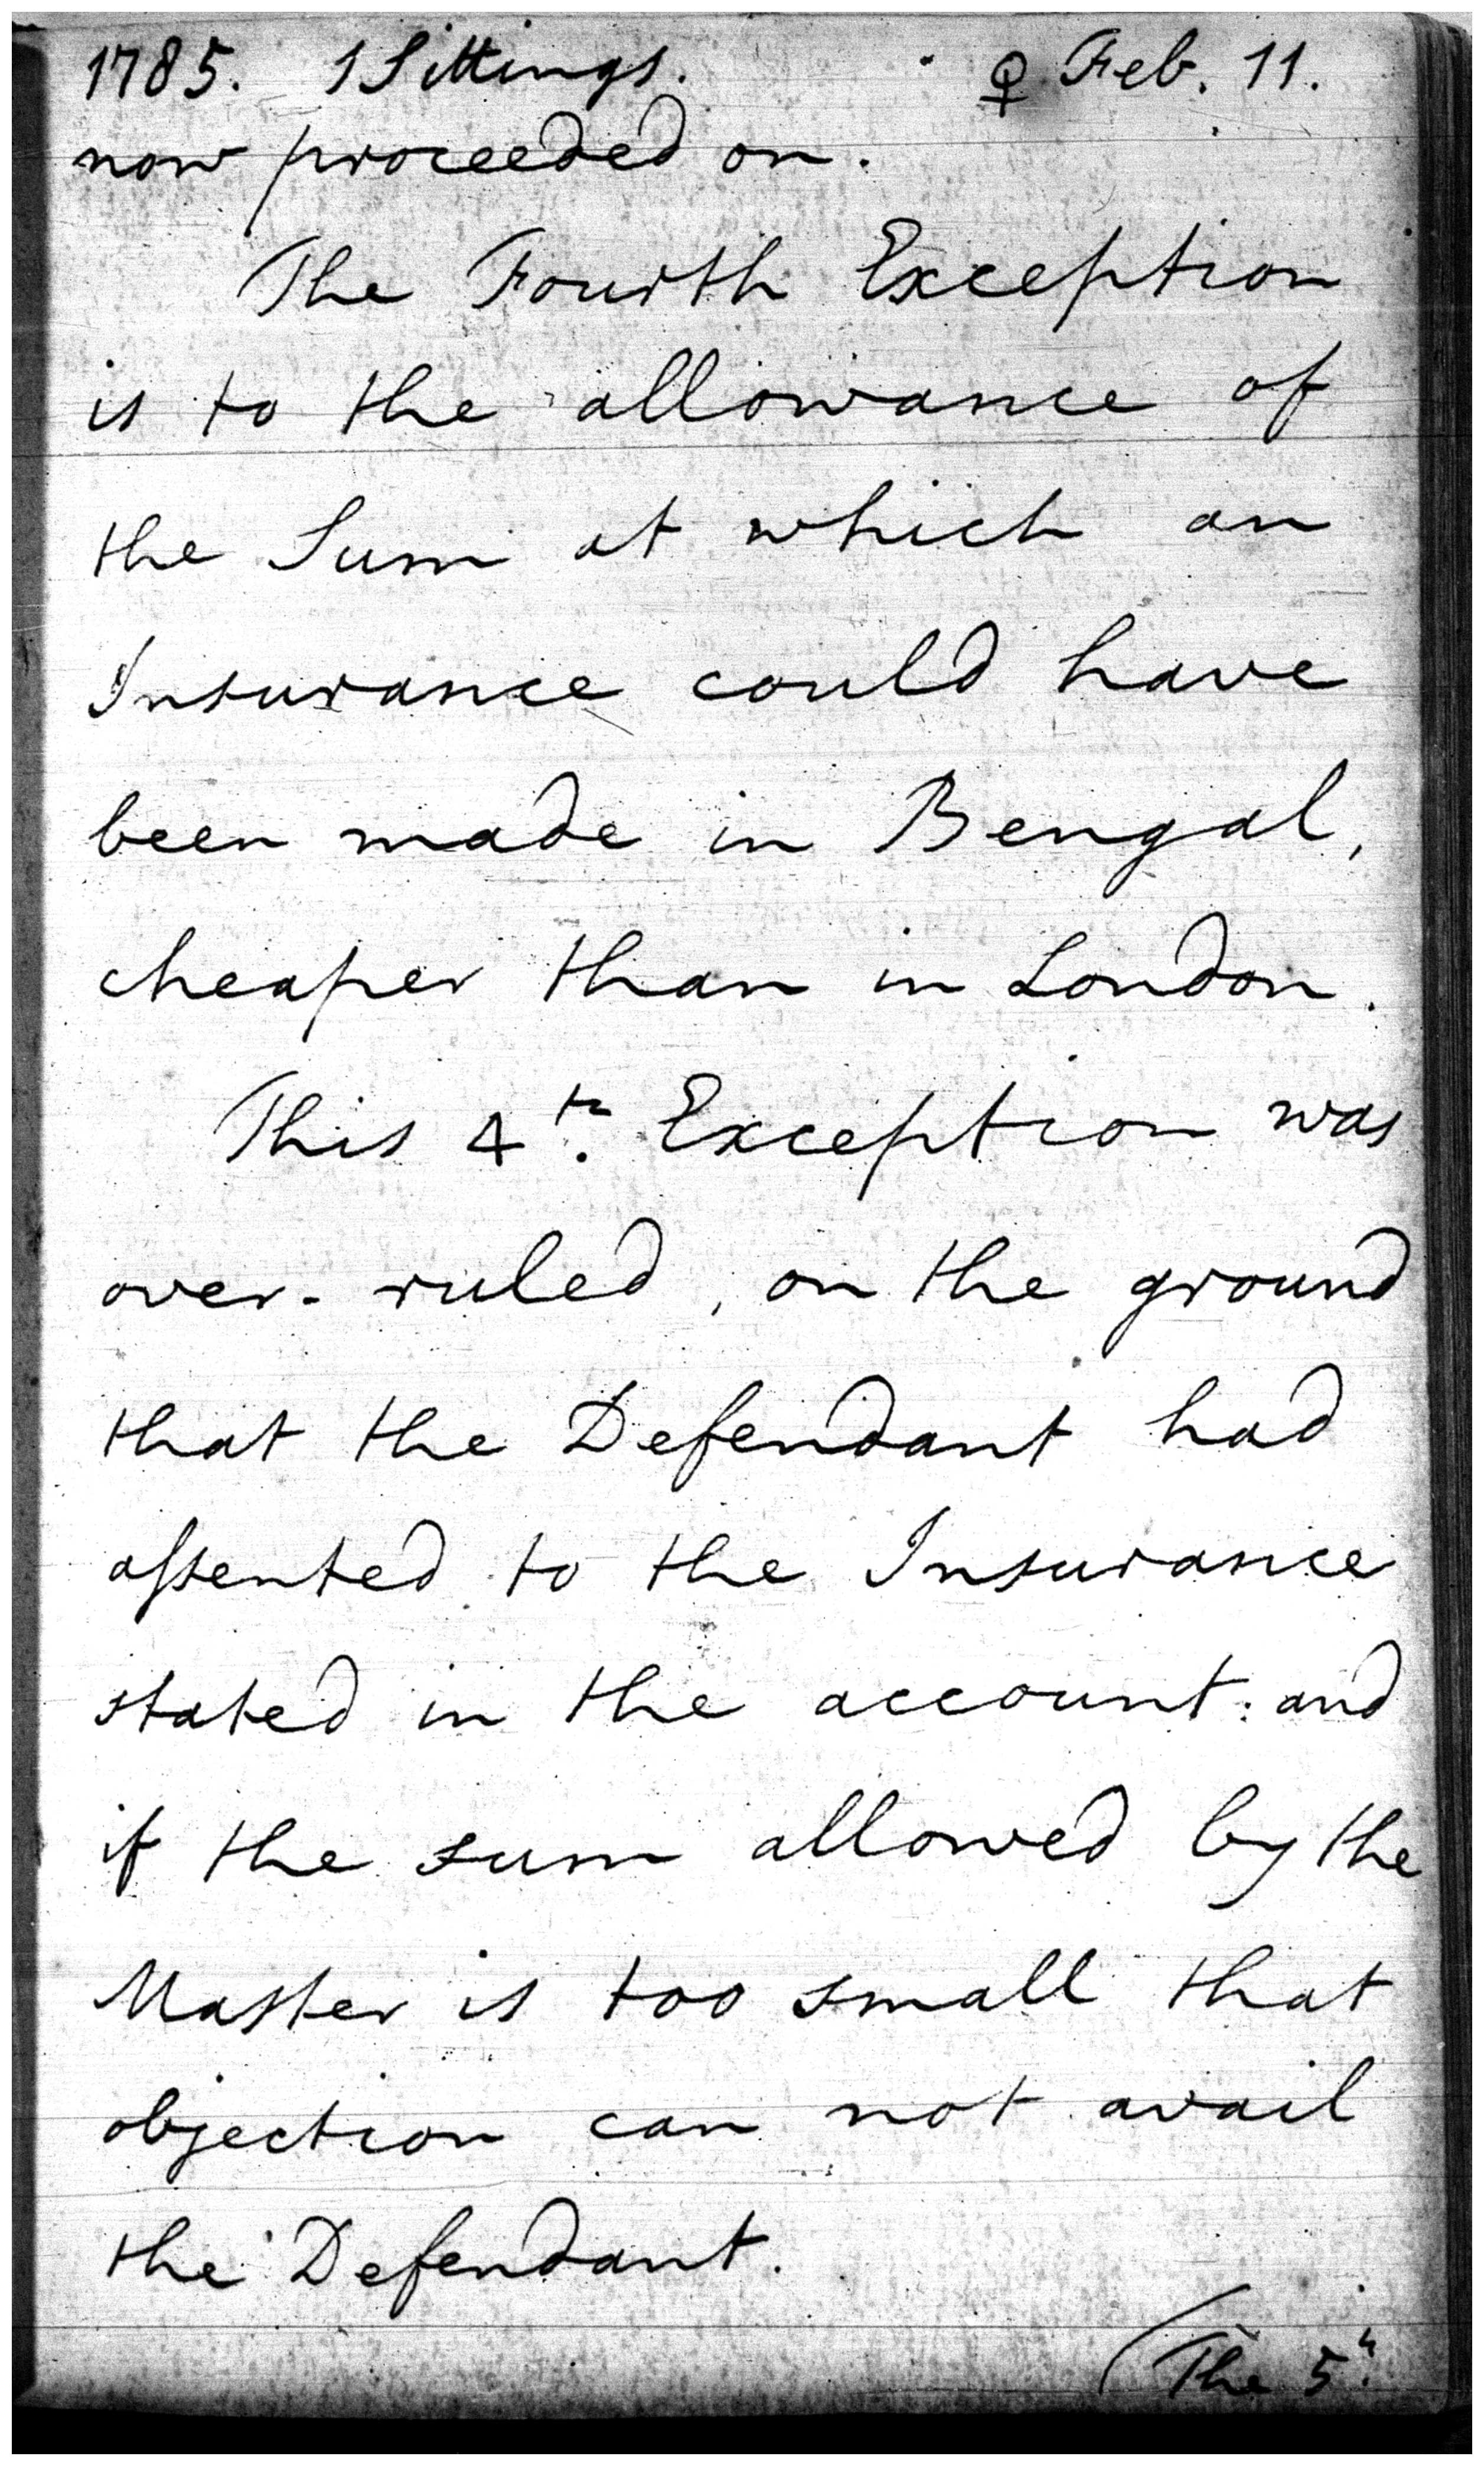 1785. 1 Sittings. ♀ Feb. 11.
now proceeded on.
The Fourth Exception
is to the allowance of
the Sum at which an
Insurance could have
been made in Bengal,
cheaper than in London.
This 4th. Exception was
over-ruled, on the ground
that the Defendant had
aſsented to the Insurance
stated in the account: and
if the sum allowed by the
Master is too small that
objection can not avail
the Defendant.
(The 5h.